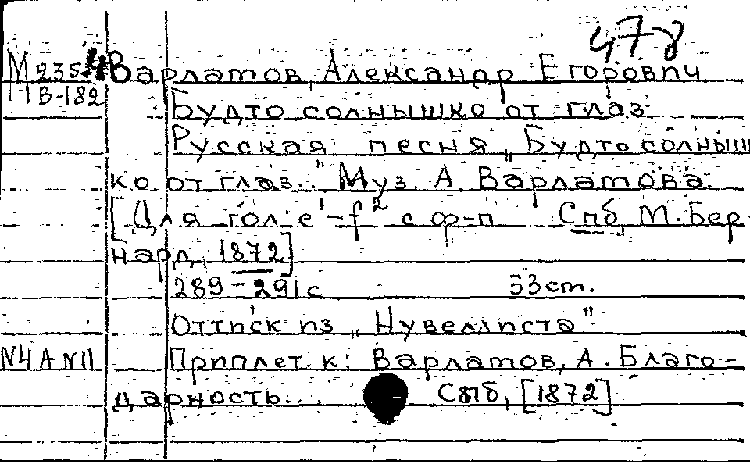 478
М 235-4 Варламов, Александр Егорович
В-182
Будто солнышко от глаз
Русская песня „Будто солныш
ко от глаз..." Муз А Варламова.
[Для гол e¹-f² с ф-п Спб, М. Бер
нард, 1872]
289-291 с 33 cm.
Оттиск из „Нувеллиста"
N4 A N11 Приплет к: Варламов, А. Благо-
дарность... Спб, [1872]